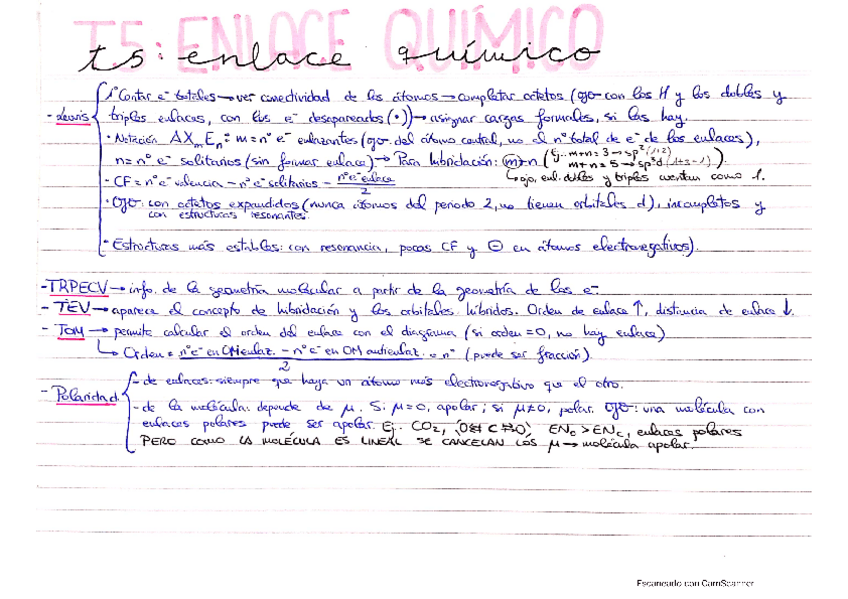 T.5: ENLACE QUÍMICO
t5: enlace químico
- Lewis
1º Contar e⁻ totales → ver conectividad de los átomos → completar octetos (ojo con los H y los dobles y
triples enlaces, con los e⁻ desapareados (•)) → asignar cargas formales, si las hay.
· Notación AXmEn: m = nº e⁻ enlazantes (ojo del átomo central, no el nº total de e⁻ de los enlaces),
n = nº e⁻ solitarios (sin formar enlace) → Para hibridación: m+n (Ej. m+n = 3 → sp² (1+2)
m+n = 5 → sp³d (1+3+1)).
↳ ojo, enl. dobles y triples cuentan como 1.
- CF = nº e⁻ valencia - nº e⁻ solitarios - nº e⁻ enlace / 2
· Ojo: con octetos expandidos (nunca átomos del periodo 2, no tienen orbitales d), incompletos y
con estructuras resonantes.
· Estructuras más estables: con resonancia, pocas CF y ⊖ en átomos electronegativos).
- TRPECV → info. de la geometría molecular a partir de la geometría de los e⁻
- TEV → aparece el concepto de hibridación y los orbitales híbridos. Orden de enlace ↑, distancia de enlace ↓.
- TOM → permite calcular el orden del enlace con el diagrama (si orden = 0, no hay enlace)
↳ Orden = nº e⁻ en OM enlaz. - nº e⁻ en OM antienlaz. / 2 = nº (puede ser fracción).
- Polaridad
- de enlaces: siempre que haya un átomo más electronegativo que el otro.
- de la molécula: depende de μ. Si μ=0, apolar; si μ≠0, polar. Ojo: una molécula con
enlaces polares puede ser apolar. Ej. CO₂, enlaces polares
PERO COMO LA MOLÉCULA ES LINEAL SE CANCELAN LOS μ → molécula apolar.
Escaneado con CamScanner